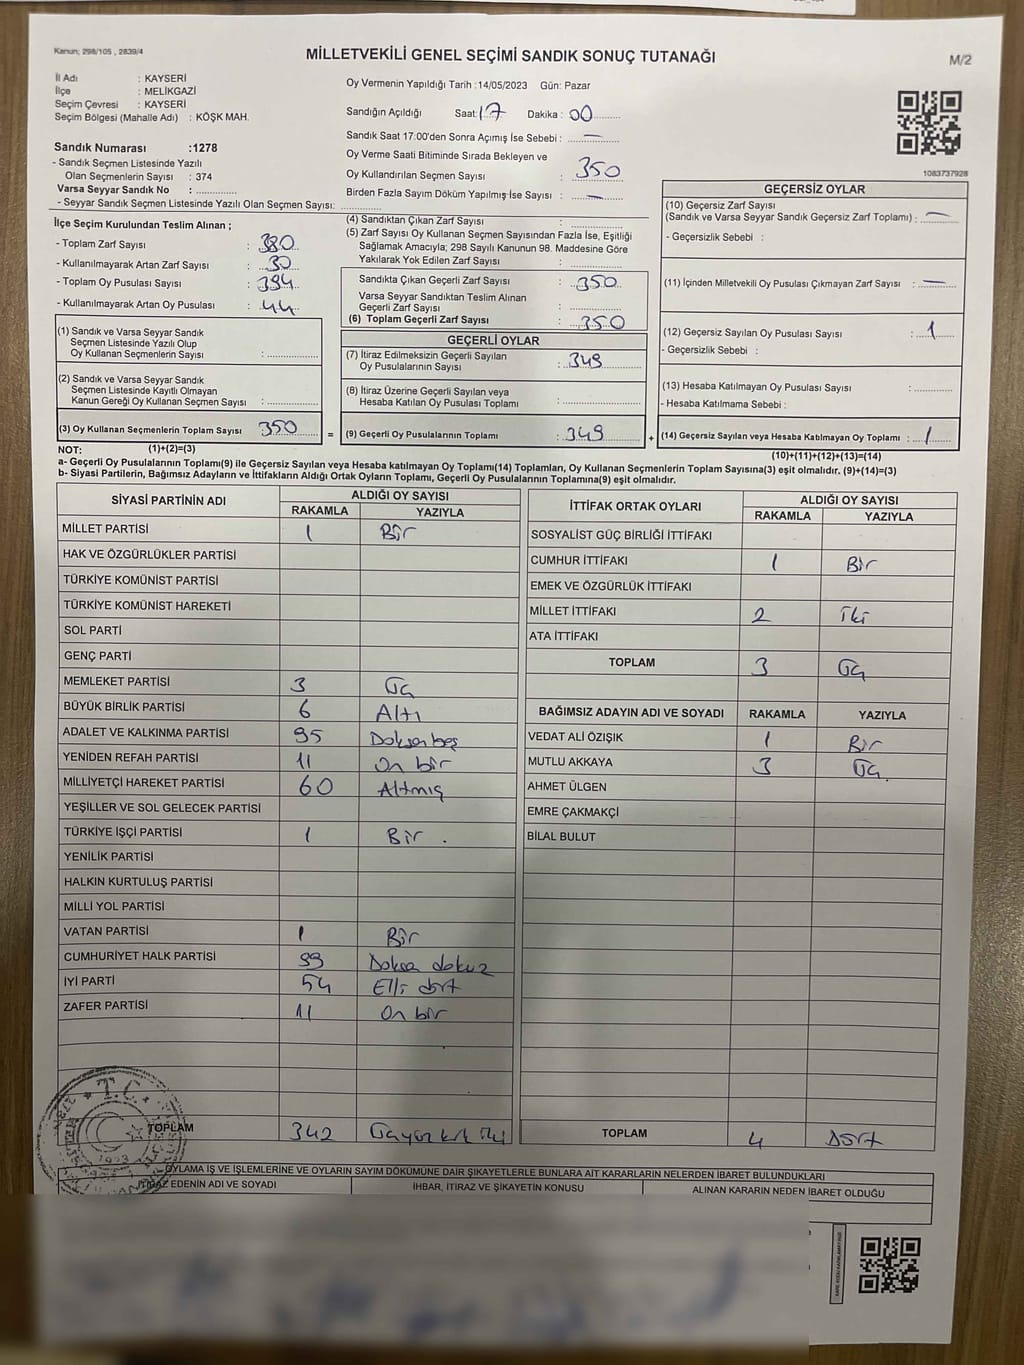 Kanun; 298/105 , 2839/4
MİLLETVEKİLİ GENEL SEÇİMİ SANDIK SONUÇ TUTANAĞI
M/2
İl Adı : KAYSERİ
İlçe : MELİKGAZİ
Seçim Çevresi : KAYSERİ
Seçim Bölgesi (Mahalle Adı) : KÖŞK MAH.
Sandık Numarası :1278
- Sandık Seçmen Listesinde Yazılı
Olan Seçmenlerin Sayısı : 374
Varsa Seyyar Sandık No :
- Seyyar Sandık Seçmen Listesinde Yazılı Olan Seçmen Sayısı:
Oy Vermenin Yapıldığı Tarih :14/05/2023 Gün: Pazar
Sandığın Açıldığı Saat: 17 Dakika : 00
Sandık Saat 17:00'den Sonra Açımış İse Sebebi : —
Oy Verme Saati Bitiminde Sırada Bekleyen ve
Oy Kullandırılan Seçmen Sayısı : 350
Birden Fazla Sayım Döküm Yapılmış İse Sayısı : —
1083737928
İlçe Seçim Kurulundan Teslim Alınan ;
- Toplam Zarf Sayısı : 380
- Kullanılmayarak Artan Zarf Sayısı : 30
- Toplam Oy Pusulası Sayısı : 394
- Kullanılmayarak Artan Oy Pusulası : 44
(1) Sandık ve Varsa Seyyar Sandık
Seçmen Listesinde Yazılı Olup
Oy Kullanan Seçmenlerin Sayısı :
(2) Sandık ve Varsa Seyyar Sandık
Seçmen Listesinde Kayıtlı Olmayan
Kanun Gereği Oy Kullanan Seçmen Sayısı :
(3) Oy Kullanan Seçmenlerin Toplam Sayısı 350
(4) Sandıktan Çıkan Zarf Sayısı :
(5) Zarf Sayısı Oy Kullanan Seçmen Sayısından Fazla İse, Eşitliği
Sağlamak Amacıyla; 298 Sayılı Kanunun 98. Maddesine Göre
Yakılarak Yok Edilen Zarf Sayısı :
Sandıkta Çıkan Geçerli Zarf Sayısı : 350
Varsa Seyyar Sandıktan Teslim Alınan
Geçerli Zarf Sayısı :
(6) Toplam Geçerli Zarf Sayısı : 350
GEÇERLİ OYLAR
(7) İtiraz Edilmeksizin Geçerli Sayılan
Oy Pusulalarının Sayısı : 349
(8) İtiraz Üzerine Geçerli Sayılan veya
Hesaba Katılan Oy Pusulası Toplamı :
= (9) Geçerli Oy Pusulalarının Toplamı : 349
GEÇERSİZ OYLAR
(10) Geçersiz Zarf Sayısı
(Sandık ve Varsa Seyyar Sandık Geçersiz Zarf Toplamı) : —
- Geçersizlik Sebebi :
(11) İçinden Milletvekili Oy Pusulası Çıkmayan Zarf Sayısı : —
(12) Geçersiz Sayılan Oy Pusulası Sayısı : 1
- Geçersizlik Sebebi :
(13) Hesaba Katılmayan Oy Pusulası Sayısı :
- Hesaba Katılmama Sebebi :
+ (14) Geçersiz Sayılan veya Hesaba Katılmayan Oy Toplamı : 1
NOT: (1)+(2)=(3)
(10)+(11)+(12)+(13)=(14)
a- Geçerli Oy Pusulalarının Toplamı(9) ile Geçersiz Sayılan veya Hesaba katılmayan Oy Toplamı(14) Toplamları, Oy Kullanan Seçmenlerin Toplam Sayısına(3) eşit olmalıdır. (9)+(14)=(3)
b- Siyasi Partilerin, Bağımsız Adayların ve İttifakların Aldığı Ortak Oyların Toplamı, Geçerli Oy Pusulalarının Toplamına(9) eşit olmalıdır.
SİYASİ PARTİNİN ADI ALDIĞI OY SAYISI
RAKAMLA YAZIYLA
MİLLET PARTİSİ 1 Bir
HAK VE ÖZGÜRLÜKLER PARTİSİ
TÜRKİYE KOMÜNİST PARTİSİ
TÜRKİYE KOMÜNİST HAREKETİ
SOL PARTİ
GENÇ PARTİ
MEMLEKET PARTİSİ 3 Üç
BÜYÜK BİRLİK PARTİSİ 6 Altı
ADALET VE KALKINMA PARTİSİ 95 Doksan beş
YENİDEN REFAH PARTİSİ 11 On bir
MİLLİYETÇİ HAREKET PARTİSİ 60 Altmış
YEŞİLLER VE SOL GELECEK PARTİSİ
TÜRKİYE İŞÇİ PARTİSİ 1 Bir .
YENİLİK PARTİSİ
HALKIN KURTULUŞ PARTİSİ
MİLLİ YOL PARTİSİ
VATAN PARTİSİ 1 Bir
CUMHURİYET HALK PARTİSİ 99 Doksan dokuz
İYİ PARTİ 54 Elli dört
ZAFER PARTİSİ 11 On bir
TOPLAM 342 Üçyüz kırk iki
İTTİFAK ORTAK OYLARI ALDIĞI OY SAYISI
RAKAMLA YAZIYLA
SOSYALİST GÜÇ BİRLİĞİ İTTİFAKI
CUMHUR İTTİFAKI 1 Bir
EMEK VE ÖZGÜRLÜK İTTİFAKI
MİLLET İTTİFAKI 2 İki
ATA İTTİFAKI
TOPLAM 3 Üç
BAĞIMSIZ ADAYIN ADI VE SOYADI RAKAMLA YAZIYLA
VEDAT ALİ ÖZIŞIK 1 Bir
MUTLU AKKAYA 3 Üç
AHMET ÜLGEN
EMRE ÇAKMAKÇİ
BİLAL BULUT
TOPLAM 4 Dört
T.C.
1993
OYLAMA İŞ VE İŞLEMLERİNE VE OYLARIN SAYIM DÖKÜMÜNE DAİR ŞİKAYETLERLE BUNLARA AİT KARARLARIN NELERDEN İBARET BULUNDUKLARI
EDENİN ADI VE SOYADI İHBAR, İTİRAZ VE ŞİKAYETİN KONUSU ALINAN KARARIN NEDEN İBARET OLDUĞU